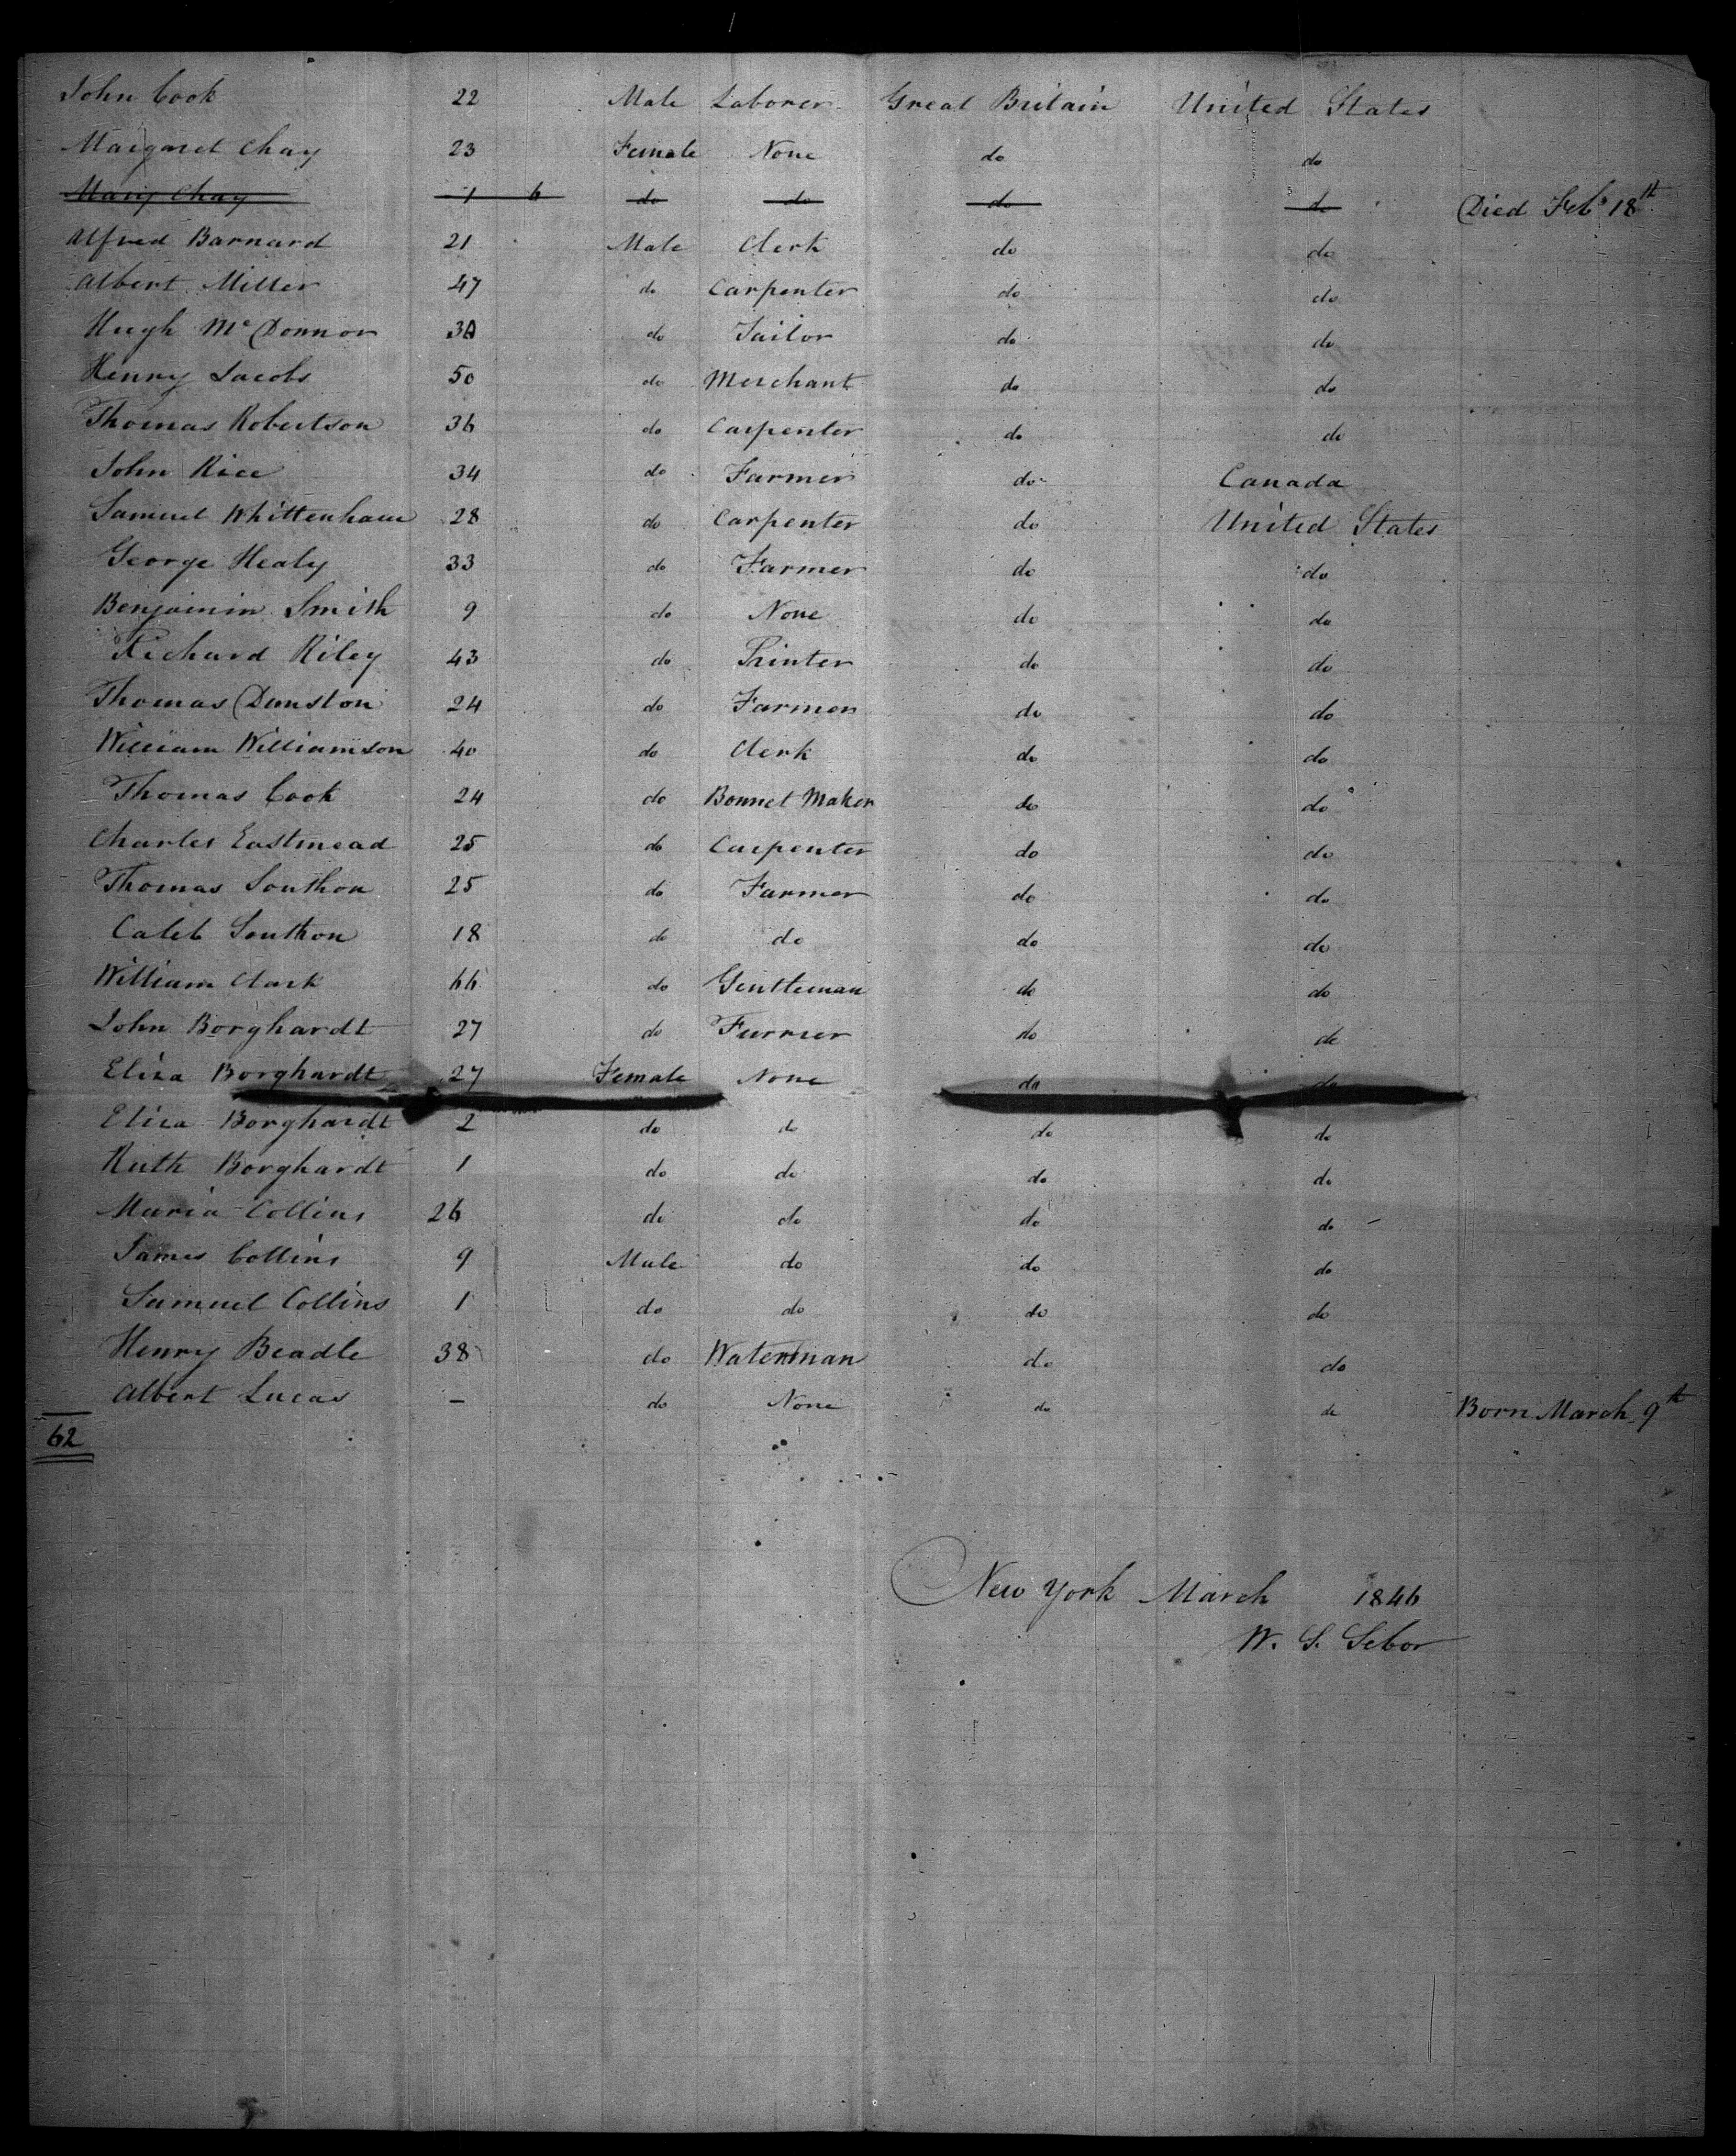 John Cook 22 Male Laborer Great Britain United States
Margaret Chay 23 Female None do do
Mary Chay 1 6 do do do do Died Feb 18th
Alfred Barnard 21 Male Clerk do do
Albert Miller 47 do Carpenter do do
Hugh Mc Donnor do Tailor do do
Henry Jacobs 50 do Merchant do do
Thomas Robertson 36 do Carpenter do do
John Rice 34 do Farmer do Canada
Samuel Whittenham 28 do Carpenter do United States
George Healy 33 do Farmer do do
Benjamin Smith 9 do None do do
Richard Riley 43 do Printer do do
Thomas Dunston 24 do Farmer do do
William Williamson 40 do Clerk do do
Thomas Cook 24 do Bonnet Maker do do
Charles Eastmead 25 do Carpenter do do
Thomas Southon 25 do Farmer do do
Caleb Southon 18 do do do do
William Clark 66 do Gentleman do do
John Borghardt 27 do Furrier do do
Eliza Borghardt 27 Female None do do
Eliza Borghardt 2 do do do do
Ruth Borghardt 1 do do do do
Maria Collins 26 do do do do
James Collins 9 Male do do do
Samuel Collins 1 do do do do
Henry Beadle 38 do Waterman do do
Albert Lucas – do None do do Born March 9th
62
New York March 1846
W. S. Sebor